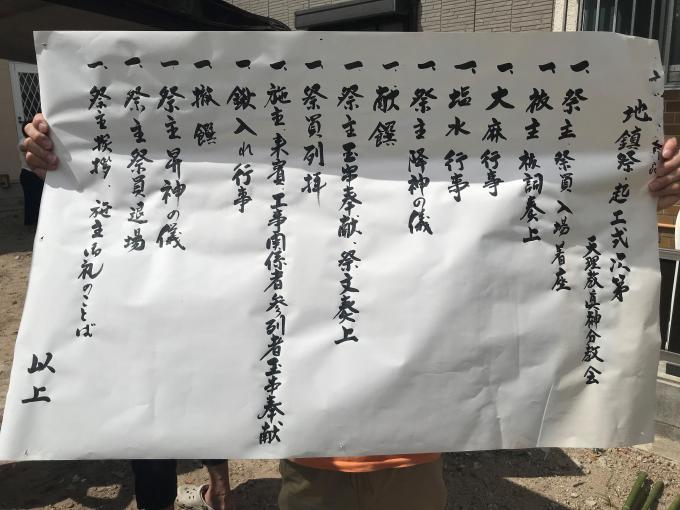 地鎮祭起工式次第
天理教真神分教会
一、祭主、祭員入場着座
一、祓主祓詞奏上
一、大麻行事
一、塩水行事
一、祭主降神の儀
一、献饌
一、祭主玉串奉献、祭文奏上
一、祭員列拝
一、施主、来賓、工事関係者参列者玉串奉献
一、鍬入れ行事
一、撤饌
一、祭主昇神の儀
一、祭主祭員退場
一、祭主挨拶、施主御礼のことば
以上